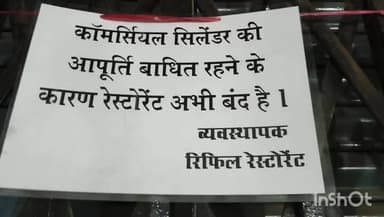 कॉमर्सियल सिलेंडर की
आपूर्ति बाधित रहने के
कारण रेस्टोरेंट अभी बंद है।
व्यवस्थापक
रिफिल रेस्टोरेंट
InShOt